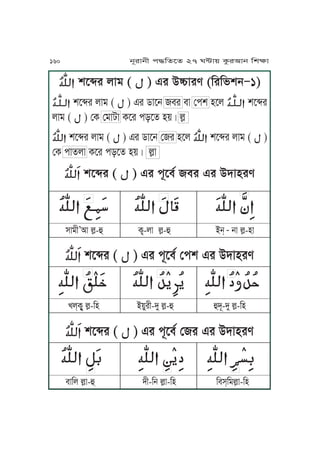 ১৬০ নূরানী পদ্ধতিতে ২৭ ঘন্টায় কুরআন শিক্ষা
اَللهُ শব্দের লাম ( ل ) এর উচ্চারণ (রিভিশন-১)
اَللهُ শব্দের লাম ( ل ) এর ডানে জবর বা পেশ হলে اَللهُ শব্দের
লাম ( ل ) কে মোটা করে পড়তে হয়। ল্ল
اَللهُ শব্দের লাম ( ل ) এর ডানে জের হলে اَللهُ শব্দের লাম ( ل )
কে পাতলা করে পড়তে হয়। ল্লা
اَللهُ শব্দের ( ل ) এর পূর্বে জবর এর উদাহরণ
اِنَّ اللهَ قَالَ اللهُ سَمِعَ اللهُ
সামী'আ ল্ল-হু ক্ব-লা ল্ল-হু ইন্ - না ল্ল-হা
اَللهُ শব্দের ( ل ) এর পূর্বে পেশ এর উদাহরণ
حُدُوْدُ اللهِ يُرِيْدُ اللهُ خَلْقُ اللهِ
খল্কু ল্ল-হি ইয়ুরী-দু ল্ল-হু হুদূ-দু ল্ল-হি
اَللهُ শব্দের ( ل ) এর পূর্বে জের এর উদাহরণ
بِسْمِ اللهِ دِيْنِ اللهِ بَلِ اللهُ
বালি ল্লা-হু দী-নি ল্লা-হি বিস্মিল্লা-হি